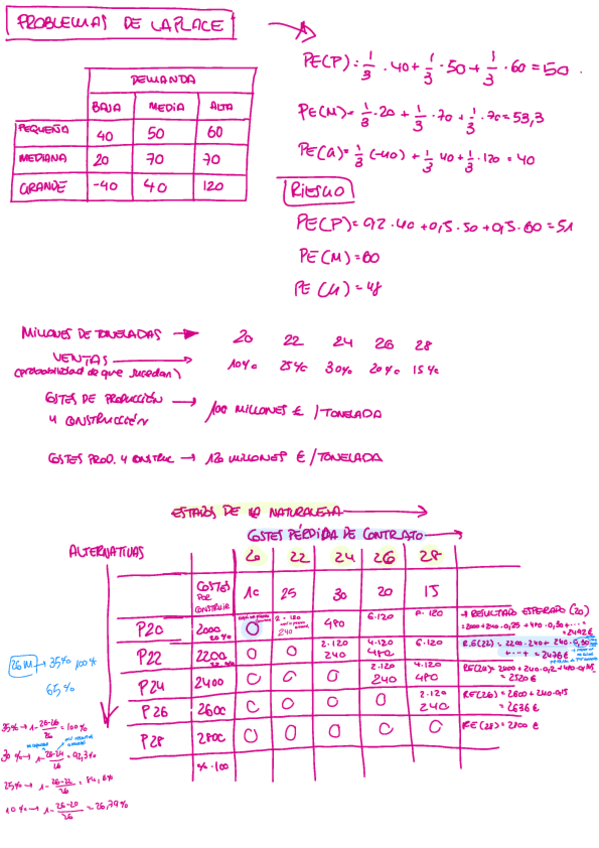 PROBLEMAS DE LAPLACE
DEMANDA
BAJA MEDIA ALTA
PEQUEÑA 40 50 60
MEDIANA 20 70 70
GRANDE -40 40 120
PE(P) = 1/3 · 40 + 1/3 · 50 + 1/3 · 60 = 50
PE(M) = 1/3 · 20 + 1/3 · 70 + 1/3 · 70 = 53,3
PE(G) = 1/3 (-40) + 1/3 40 + 1/3 · 120 = 40
RIESGO
PE(P) = 0,2 · 40 + 0,5 · 50 + 0,3 · 60 = 51
PE(M) = 60
PE(G) = 48
MILLONES DE TONELADAS → 20 22 24 26 28
VENTAS → 10% 25% 30% 20% 15%
(probabilidad de que sucedan)
COSTES DE PRODUCCIÓN → 100 MILLONES € / TONELADA
Y CONSTRUCCIÓN
COSTES PROD. Y CONSTRUC → 120 MILLONES € / TONELADA
ESTADOS DE LA NATURALEZA →
COSTES PÉRDIDA DE CONTRATO →
ALTERNATIVAS
20 22 24 26 28
COSTES POR CONSTRUIR 10 25 30 20 15
P20 2000 0 2 · 120 240 480 6·120 8·120 → RESULTADO ESPERADO (20)
= 2492€
P22 2200 0 0 2·120 240 4·120 480 6·120 R.E(22) = 2200 · 240 + 240 · 0,30
+ ··· = 2476€
P24 2400 0 0 0 2·120 240 4·120 480 RE(24) = 2400 + 240·0,2 + 480·0,15
= 2520€
P26 2600 0 0 0 0 2·120 240 RE(26) = 2600 + 240·0,15
= 2636€
P28 2800 0 0 0 0 0 RE(28) = 2800 €
x · 100
26M → 35% 100%
65%
35% → 1 - 26-26/26 = 100%
30% → 1 - 26-24/26 = 92,3%
25% → 1 - 26-22/26 = 84,6%
10% → 1 - 26-20/26 = 26,79%